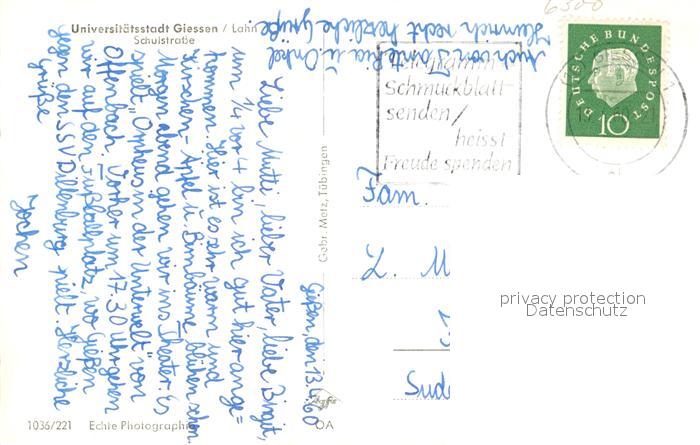 Universitätsstadt Giessen / Lahn
Schulstraße
Gießen, den 13.4.60
Liebe Mutti, lieber Vater, liebe Birgit,
um 1/4 vor 4 bin ich gut hier ange=
kommen. Hier ist es sehr warm und
Kirschen- Apfel u. Birnbäume blühen schon.
Morgen abend gehen wir ins Theater. Es
spielt "Orpheus in der Unterwelt" von
Offenbach. Vorher um 17.30 Uhr gehen
wir auf den Fußballplatz, wo Gießen
gegen den SSV Dillenburg spielt. Herzliche
Grüße
Jochen
Auch von Tante Ria u. Onkel
Heinrich recht herzliche Grüße.
Gebr. Metz, Tübingen
1036/221 Echte Photographie
Agfa
OA
6300
Schmuckblatt-
senden/
heisst
Freude spenden
DEUTSCHE BUNDESPOST
10
Fam.
L. M
Sud
privacy protection
Datenschutz